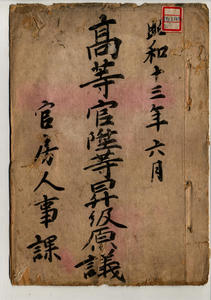 昭和十三年六月
高等官陞等昇級原議
官房人事課